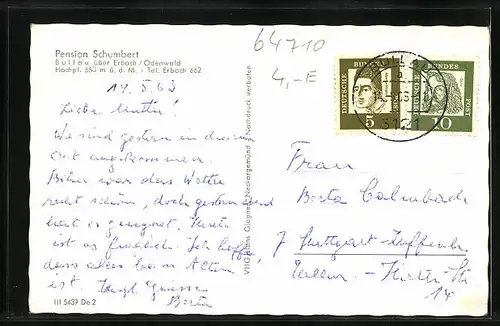 Pension Schumbert
Bullau über Erbach/Odenwald
Hochpl. 553 m ü. d. M. - Tel. Erbach 662
64710
4,-E
14.5.63
Liebe Mutter!
Wir sind gestern in diesem
Ort angekommen.
Bisher war das Wetter
recht schön, doch gestern Abend
hat es geregnet. Heute
ist es fraglich. Ich hoffe,
dass alles beim Alten
ist. Herzl. Grüsse
Berta
III 5439 De 2
Nachdruck verboten
DEUTSCHE BUNDESPOST
5
DEUTSCHE BUNDESPOST
10
Frau
Berta
7 Stuttgart-Zuffenh.
Hirth-Str
14